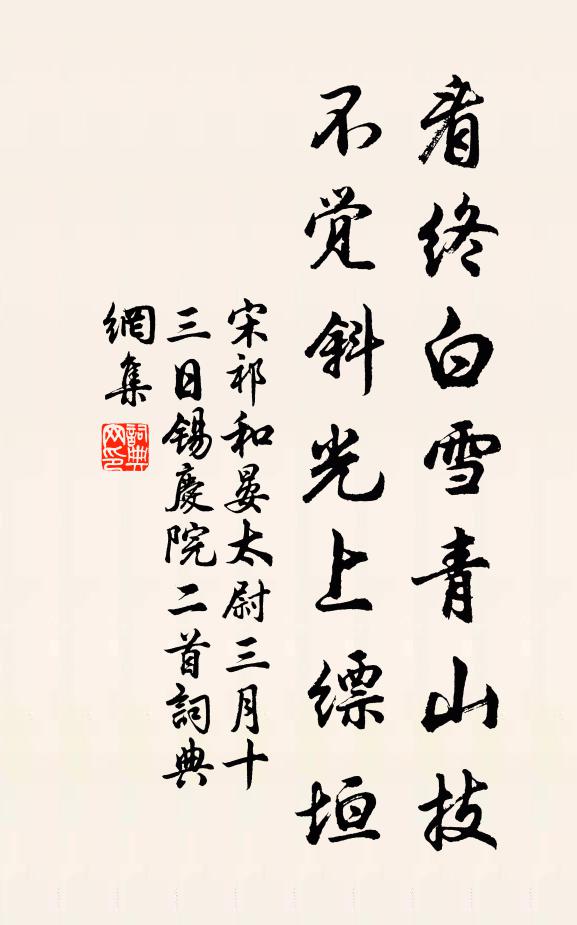 看终白雪青山技
不觉斜光上缥垣
宋祁和晏太尉三月十
三日锡慶院二首詞典
網集
詞典
网印